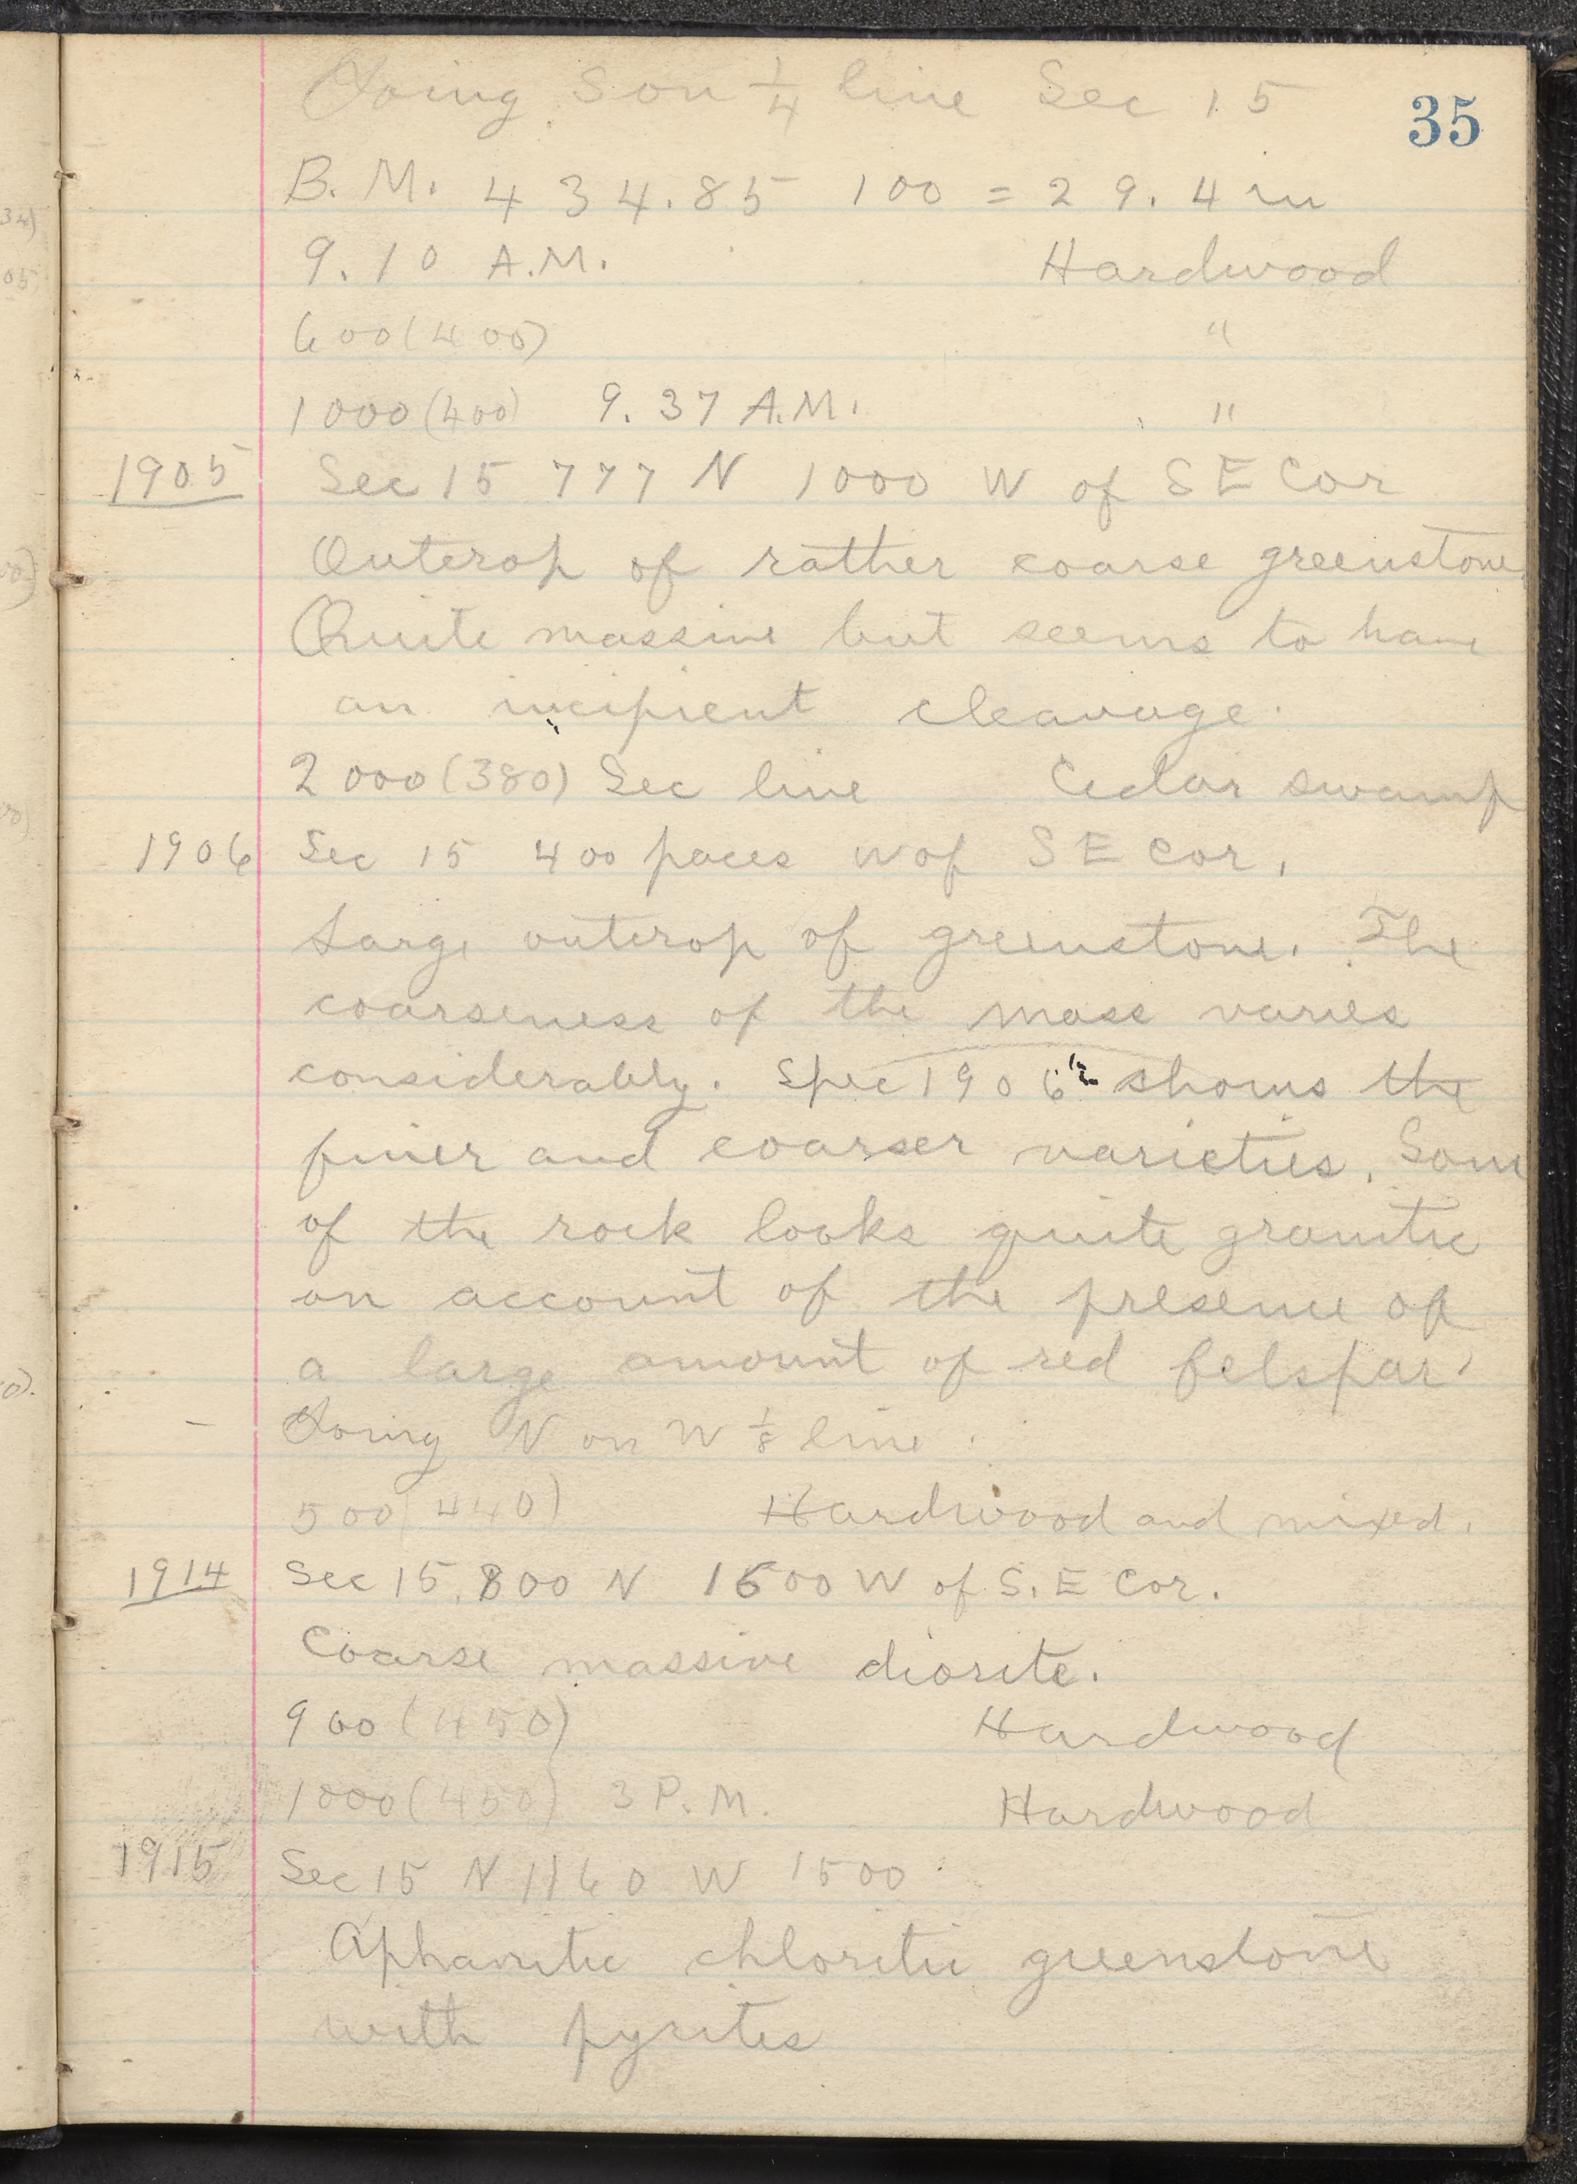 Going S on 1/4 line Sec 15
35
B. M. 434.85 100 = 29.4 m
9.10 A.M. Hardwood
600 (400) "
1000 (400) 9.37 A.M. "
1905 Sec 15 777 N 1000 W of S E Cor
Outcrop of rather coarse greenstone.
Quite massive but seems to have
an incipient cleavage.
2000 (380) Sec line Cedar swamp
1906 Sec 15 400 paces W of S E Cor.
Large outcrop of greenstone. The
coarseness of the mass varies
considerably. Spec 1906 shows the
finer and coarser varieties. Some
of the rock looks quite granitic
on account of the presence of
a large amount of red felspar.
Going N on W 1/8 line.
500 (440) Hardwood and mixed.
1914 Sec 15. 800 N 1500 W of S. E Cor.
Coarse massive diorite.
900 (450) Hardwood
1000 (450) 3 P.M. Hardwood
1915 Sec 15 N 1160 W 1500
Aphanitic chloritic greenstone
with pyrites